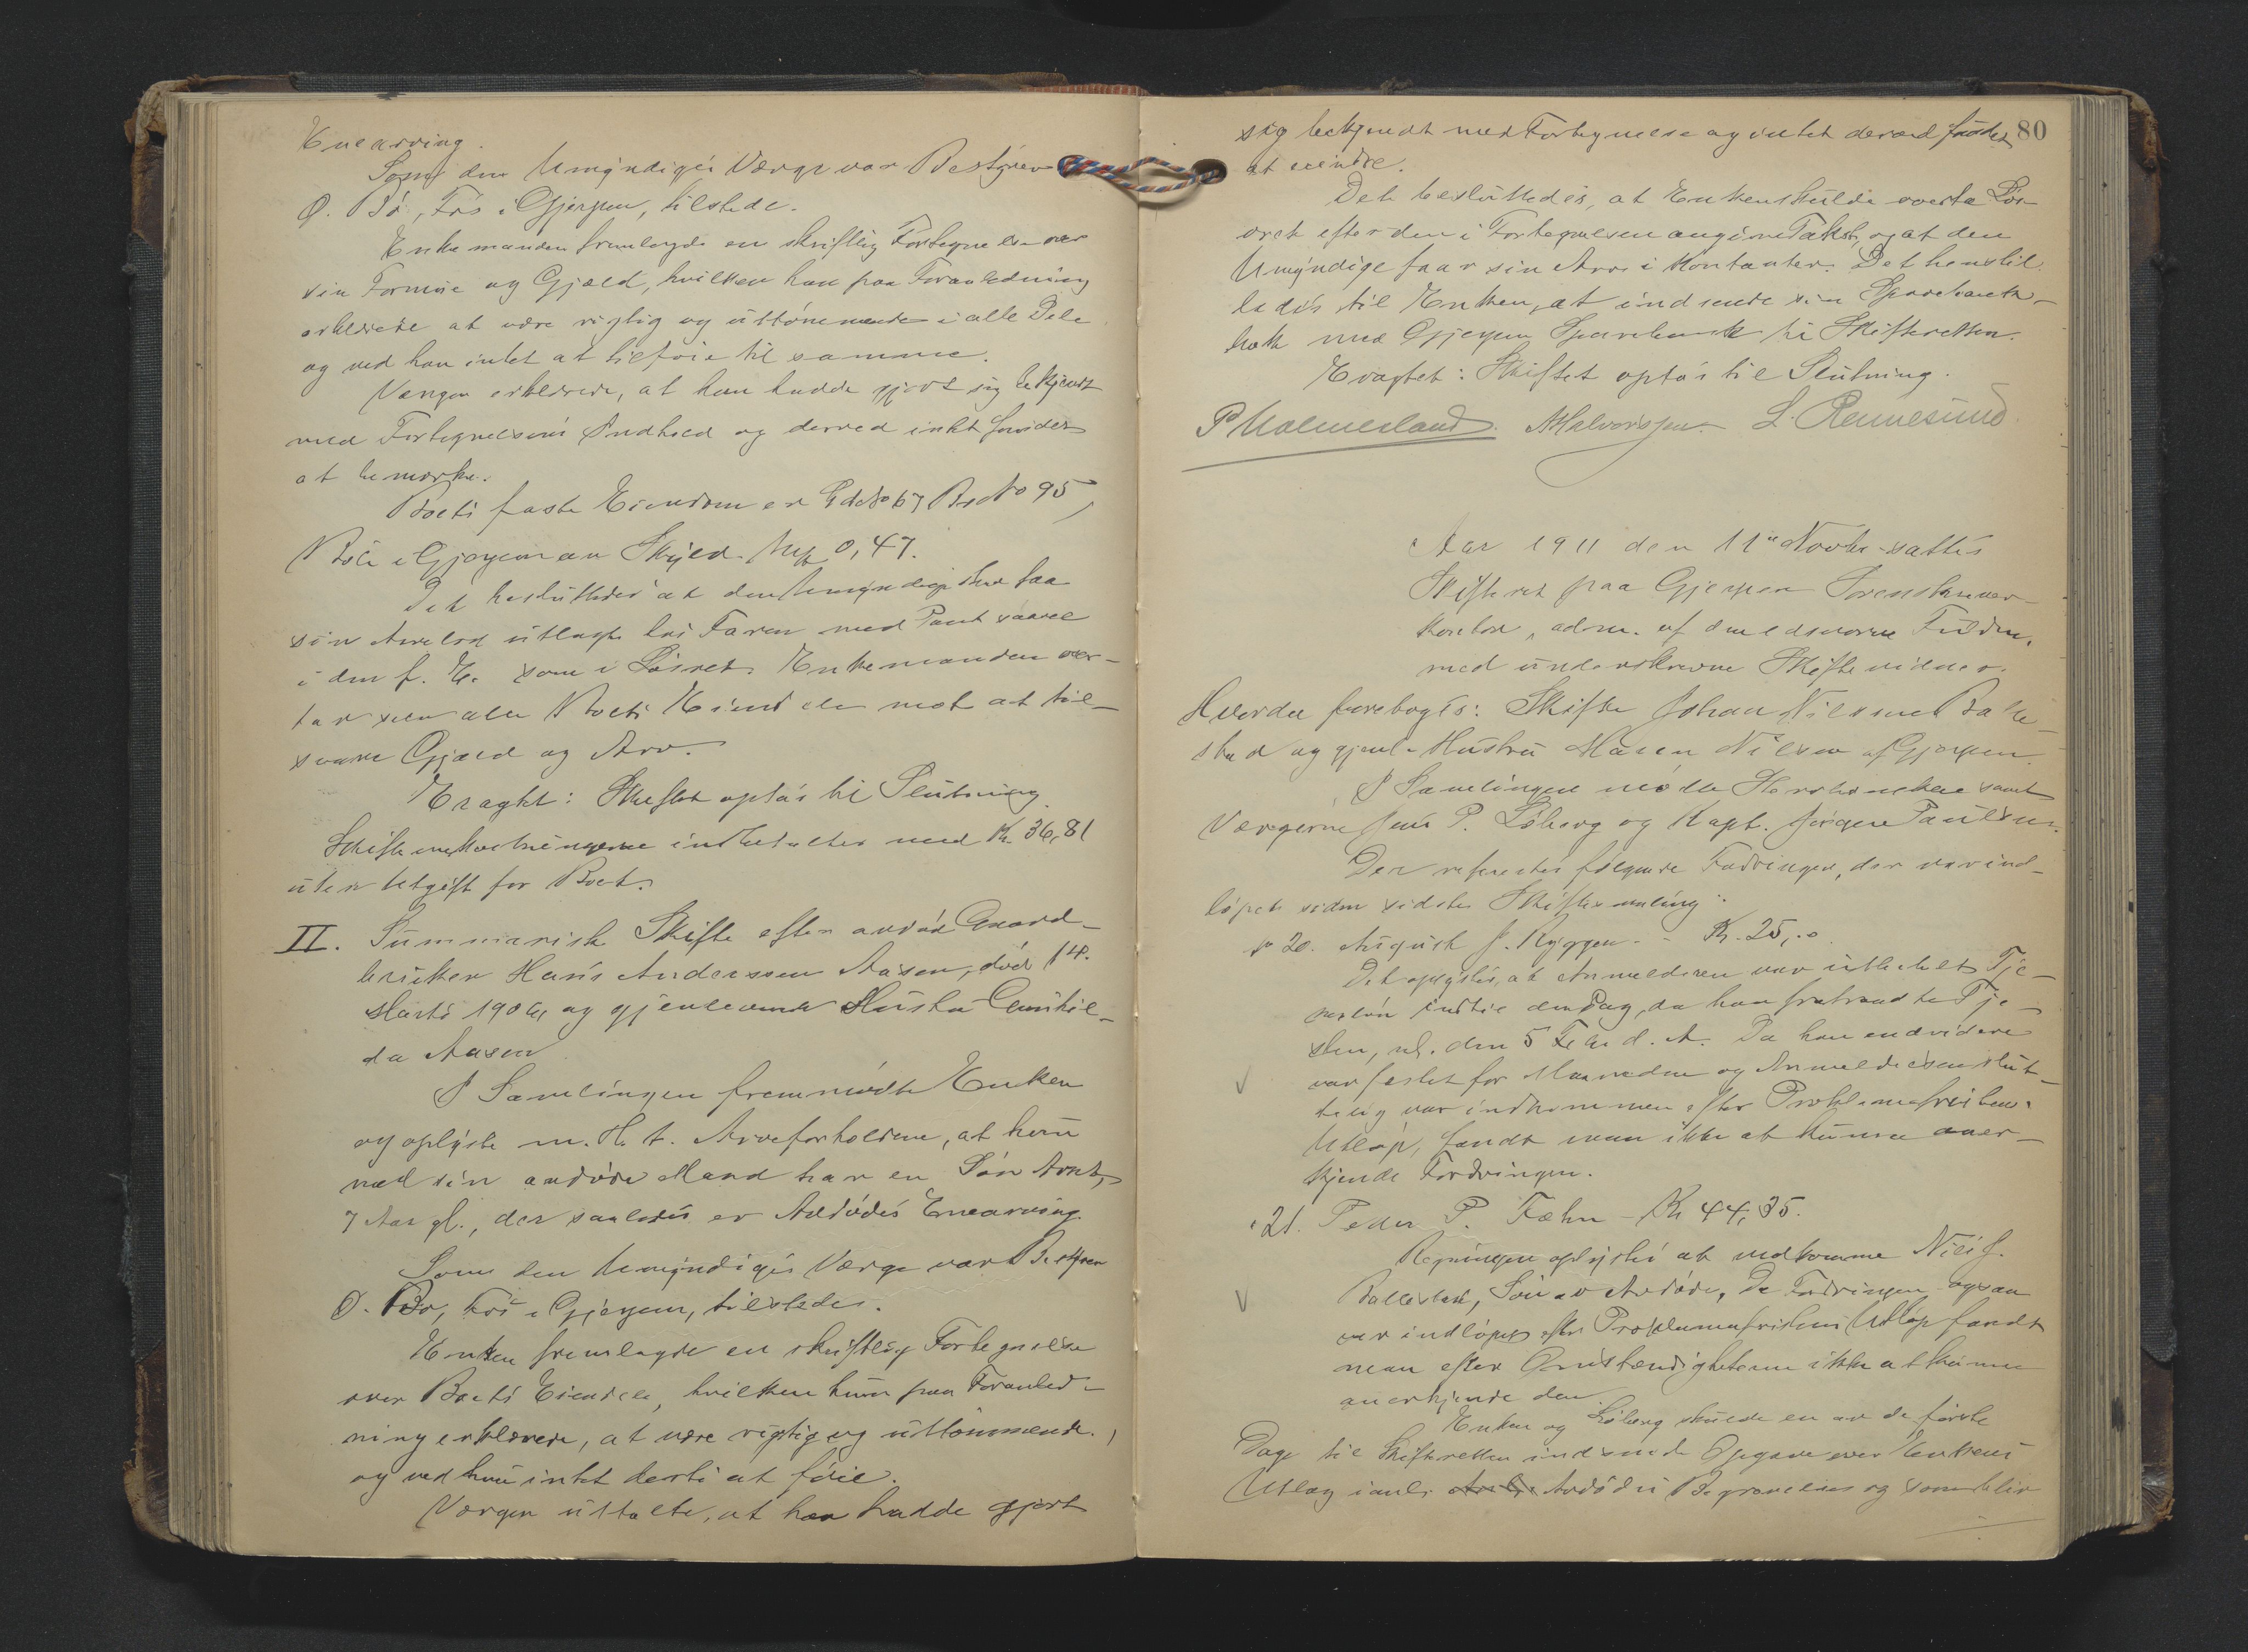 Enearving.
Som den Umyndiges Værge var Bestyrer
O. Bø, Fos i Gjerpen, tilstede.
Enkemanden fremlagde en skriftlig Fortegnelse over
sin Formue og Gjæld, hvilken han paa Foranledning
erklærede at være rigtig og uttømmende i alle Dele
og ved han intet at tilføie til samme.
Værgen erklærede, at han hadde gjort sig bekjendt
med Fortegnelsens Indhold og derved intet fandtes
at bemærke.
Boets faste Eiendom er Gde No 67 Br. No 95,
i Gjerpen av Skyld Mk 0,47.
Det besluttedes at den Umyndige skal faa
sin Arvelod utlagt hos Faren med Pant saavel
i den f. E. som i Løsøret. Enkemanden over-
tar selv alle Boets Eiendele mot at til-
svare Gjæld og Arv.
Eragtet: Skiftet optas til Slutning.
Skifteomkostningerne indbetaltes med Kr. 36,81
uten Utgift for Boet.
II. Summarisk Skifte efter avdød Gaard-
bruker Hans Anderssen Aasen, død 14.
Marts 1906, og gjenlevende Hustru Gunhil-
da Aasen
I Samlingen fremmødte Enken
og oplyste m. H. t. Arveforholdene, at hun
med sin avdøde Mand har en Søn Arnt,
7 Aar gl., der saaledes er Avdødes Enearving.
Som den Umyndiges Værge var Bestyrer
O. Bø, Fos i Gjerpen, tilstede.
Enken fremlagde en skriftlig Fortegnelse
over Boets Eiendele, hvilken hun paa Foranled-
ning erklærede, at være rigtig og uttømmende,
og ved hun intet dertil at føie.
Værgen uttalte, at han hadde gjort
80
sig bekjendt med Fortegnelsen og intet derved fandtes
at erindre.
Det besluttedes, at Enken skulde overta Løs-
øret efter den i Fortegnelsen angivne Takst, og at den
Umyndige faar sin Arv i Kontanter. Det henstil-
ledes til Enken, at indsende sin Sparebank-
bok med Gjerpen Sparebank til Skifteretten.
Eragtet: Skiftet optas til Slutning.
P Holmesland. AHalvorsen. L. Rennesund
Aar 1911 den 11te Novbr. sattes
Skifteret paa Gjerpen Sorenskriver-
kontor, adm. af den edsvorne Fuldm.
med underskrevne Skiftevidner.
Hvorda forebogtes: Skifte Johan Nilssen Balle-
stad og gjenl. Hustru Maren Nilsen af Gjerpen.
I Samlingen mødte Enken samt
Værgerne Jens P. Løberg og Kapt. Jørgen Paulsen.
Der refereres følgende Fordringer, der var ind-
løpet siden sidste Skiftesamling:
No 20. August J. Ryggen. - Kr. 25,00
Det oplystes, at Anmelderen var utbetalt Tje-
nesløn indtil den Dag, da han fratraadte Tje-
sten, nl. den 5 Febr d. A. Da han endvidere
var festet for Maaneden og Anmeldelsen slut-
telig var indkommen efter Proklamafristens
Utløp, fandt man ikke at kunne aner-
kjende Fordringen.
" 21. Peder P. Fæhn - Kr 44,35.
Regningen oplystes at vedkomme Nils J.
Ballestad, Søn av Avdøde. Da Fordringen ogsaa
var indløpet efter Proklamafristens Utløp fandt
man efter Omstændigheterne ikke at kunne
anerkjende den.
Enken og Løberg skulde en av de første
Dage til Skifteretten indsende Opgave over Enkens
Utlæg i anl. Avdødes Begravelse og som blir